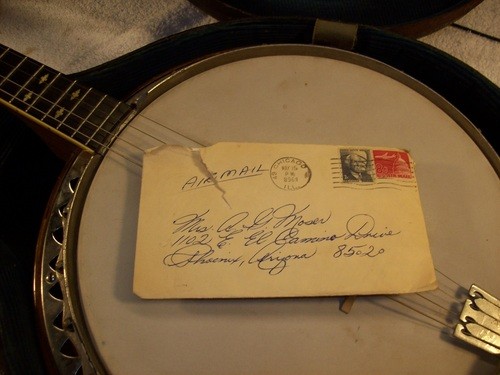 AIR MAIL
CHICAGO
PM
ILL.
Mrs. A. L. Moser
1102 E. El Camino Drive
Phoenix, Arizona 85020